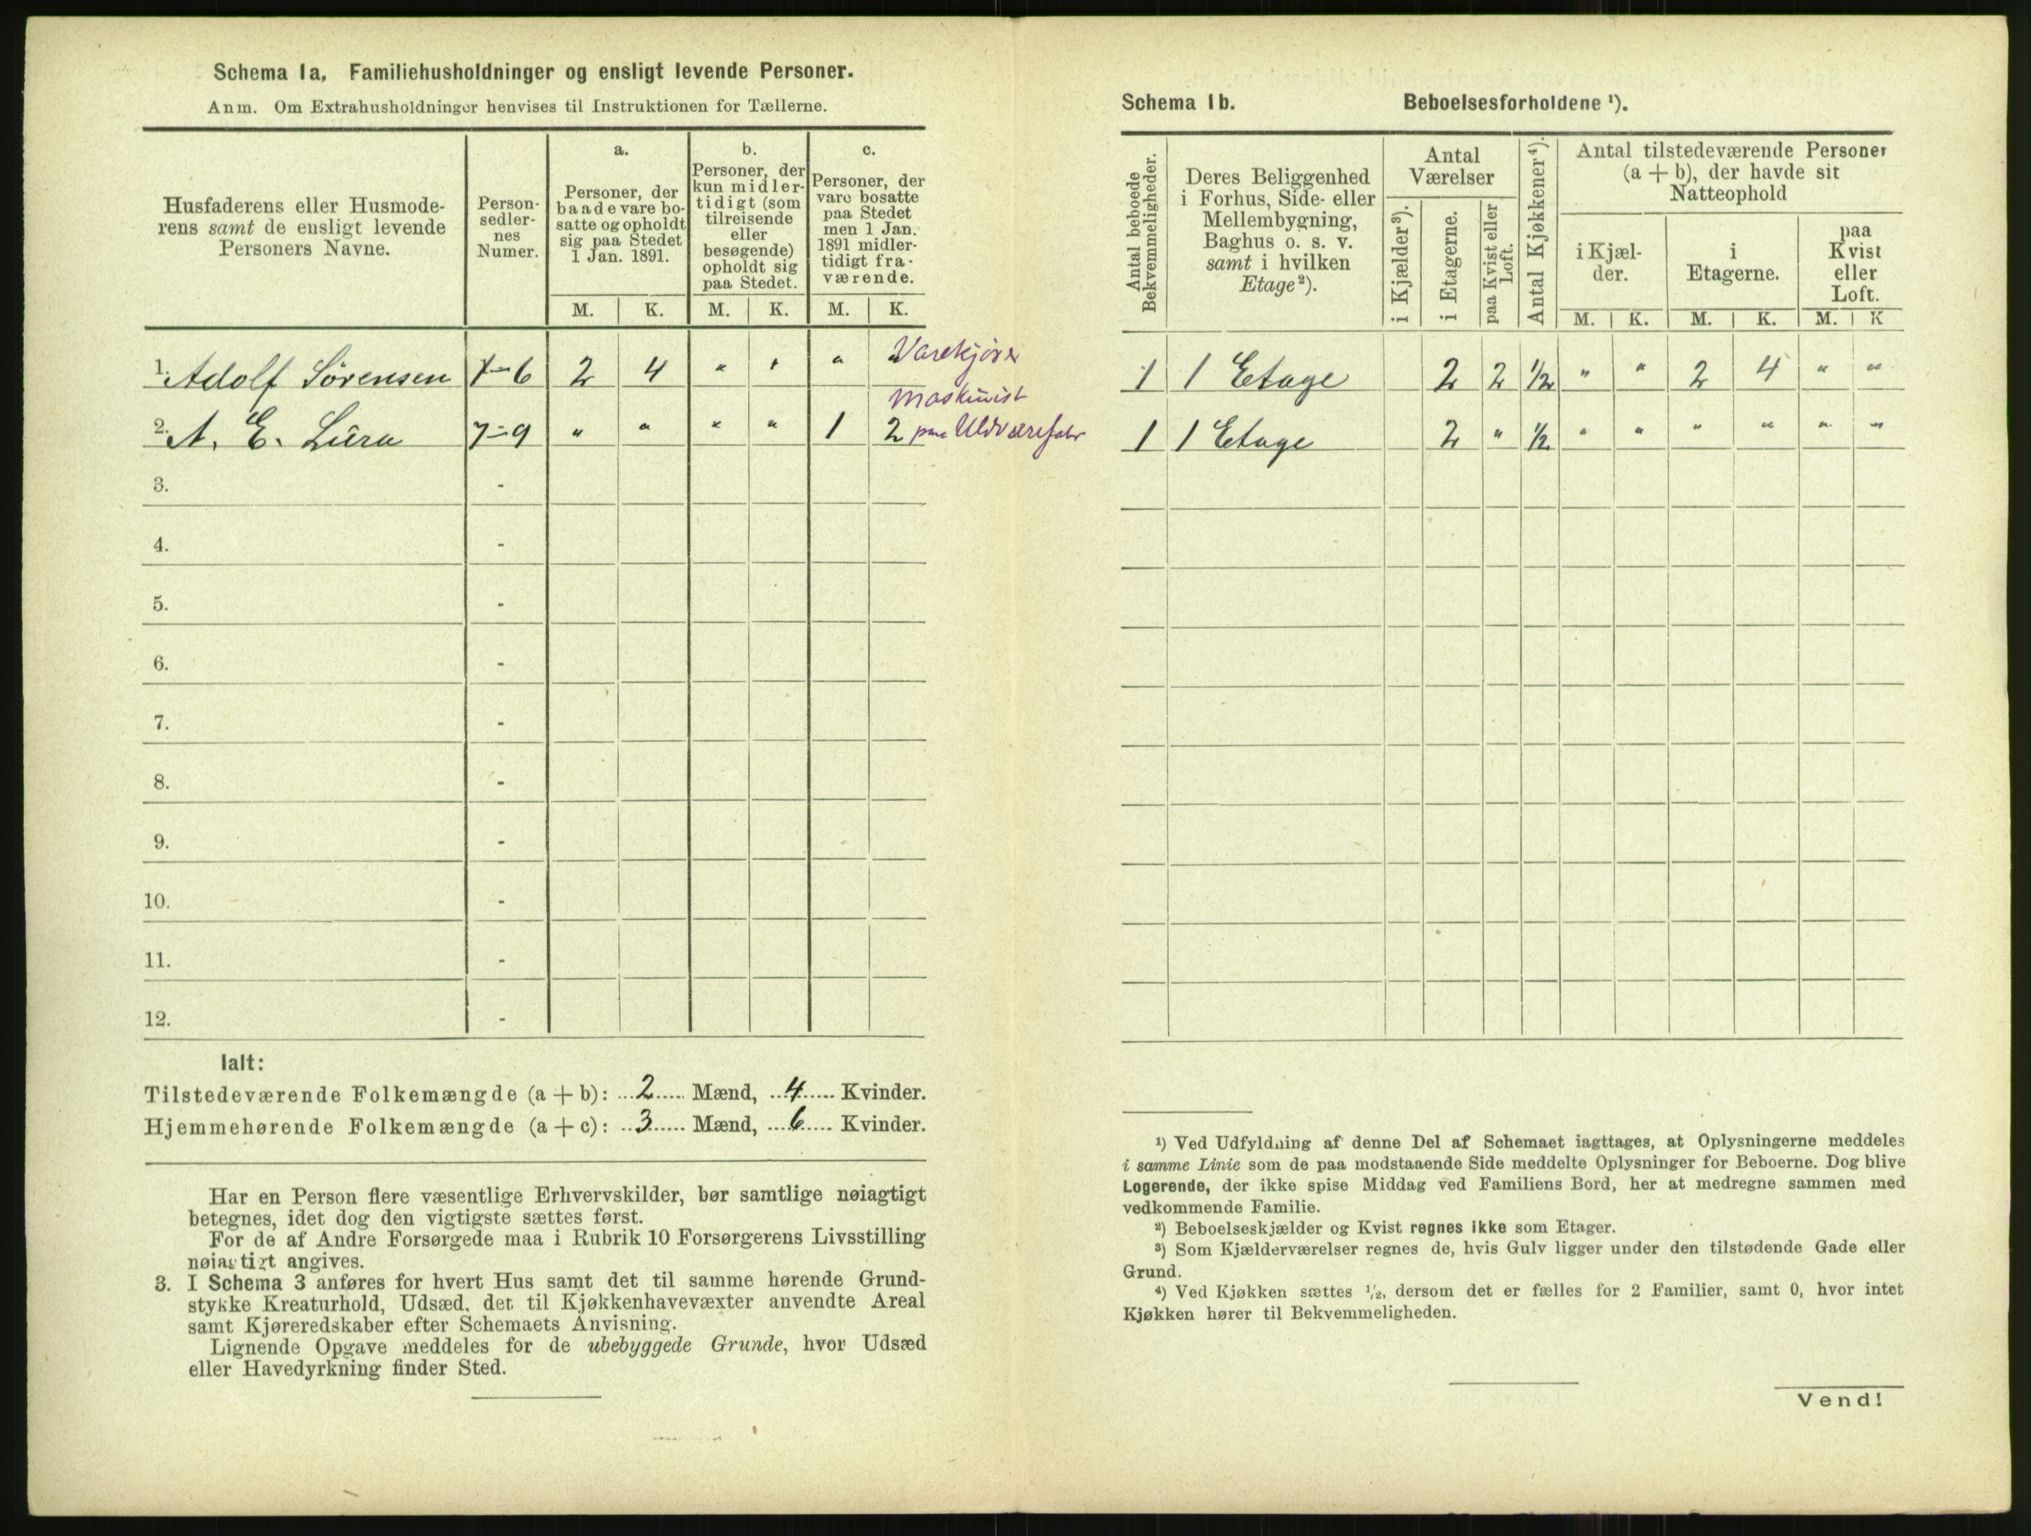 Schema 1a. Familiehusholdninger og ensligt levende Personer.
Anm. Om Extrahusholdninger henvises til Instruktionen for Tællerne.
Husfaderens eller Husmode-
rens samt de ensligt levende
Personers Navne.
Person-
sedler-
nes
Numer.
a.
Personer, der
baade vare bo-
satte og opholdt
sig paa Stedet
1 Jan. 1891.
b.
Personer, der
kun midler-
tidigt (som
tilreisende
eller
besøgende)
opholdt sig
paa Stedet.
c.
Personer, der
vare bosatte
paa Stedet
men 1 Jan.
1891 midler-
tidigt fra-
værende.
M. K. M. K. M. K.
1. Adolf Sörensen 1-6 2 4 " " " " Varekjörer
2. A. E. Lura 7-9 " " " " 1 2 Maskinist
paa Uldvarefabr
3. -
4. -
5. -
6. -
7. -
8. -
9. -
10. -
11. -
12. -
Ialt:
Tilstedeværende Folkemængde (a+b): 2 Mænd, 4 Kvinder.
Hjemmehørende Folkemængde (a+c): 3 Mænd, 6 Kvinder.
Har en Person flere væsentlige Erhvervskilder, bør samtlige nøiagtigt
betegnes, idet dog den vigtigste sættes først.
For de af Andre Forsørgede maa i Rubrik 10 Forsørgerens Livsstilling
nøiagtigt angives.
3. I Schema 3 anføres for hvert Hus samt det til samme hørende Grund-
stykke Kreaturhold, Udsæd, det til Kjøkkenhavevæxter anvendte Areal
samt Kjøreredskaber efter Schemaets Anvisning.
Lignende Opgave meddeles for de ubebyggede Grunde, hvor Udsæd
eller Havedyrkning finder Sted.
Schema 1b. Beboelsesforholdene ¹).
Antal beboede
Bekvemmeligheder.
Deres Beliggenhed
i Forhus, Side- eller
Mellembygning,
Baghus o. s. v.
samt i hvilken
Etage²).
Antal
Værelser
i Kjælder³).
i Etagerne.
paa Kvist eller
Loft.
Antal Kjøkkener⁴).
Antal tilstedeværende Personer
(a+b), der havde sit
Natteophold
i Kjæl-
der.
i
Etagerne.
paa
Kvist
eller
Loft.
M. K. M. K. M. K
1 1 Etage 2 2 ½ " " 2 4 " "
1 1 Etage 2 " ½ " " " " " "
¹) Ved Udfyldning af denne Del af Schemaet iagttages, at Oplysningerne meddeles
i samme Linie som de paa modstaaende Side meddelte Oplysninger for Beboerne. Dog blive
Logerende, der ikke spise Middag ved Familiens Bord, her at medregne sammen med
vedkommende Familie.
²) Beboelseskjælder og Kvist regnes ikke som Etager.
³) Som Kjælderværelser regnes de, hvis Gulv ligger under den tilstødende Gade eller
Grund.
⁴) Ved Kjøkken sættes ½, dersom det er fælles for 2 Familier, samt 0, hvor intet
Kjøkken hører til Bekvemmeligheden.
Vend!